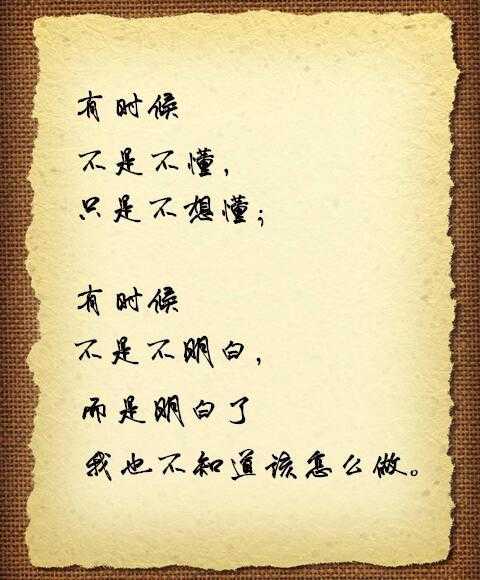 有时候
不是不懂，
只是不想懂；
有时候
不是不明白，
而是明白了
我也不知道该怎么做。